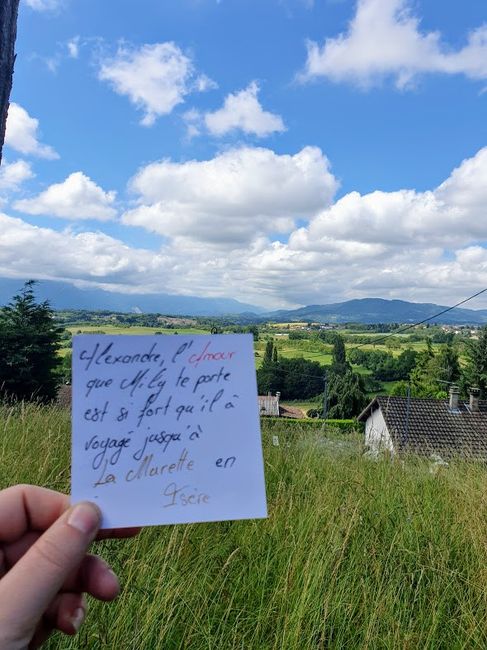 Alexandre, l'Amour
que M.Cy te porte
est si fort qu'il à
voyagé jusqu'à
La Murette en
Isère